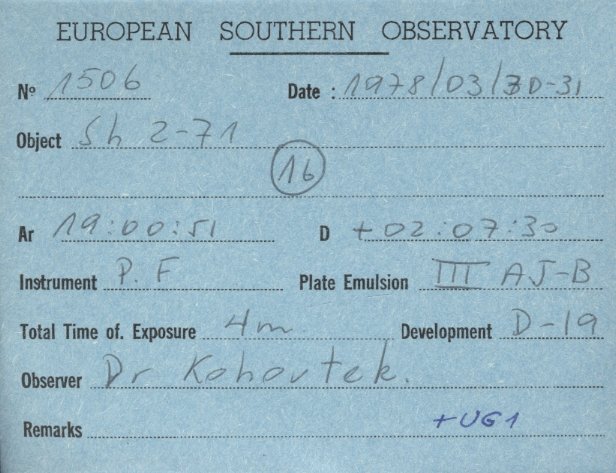 EUROPEAN SOUTHERN OBSERVATORY
Nº 1506 Date : 1978/03/30-31
Object Sh 2-71
16
Ar 19:00:51 D +02:07:30
Instrument P.F Plate Emulsion III AJ-B
Total Time of. Exposure 4m Development D-19
Observer Dr Kohoutek.
Remarks +UG1